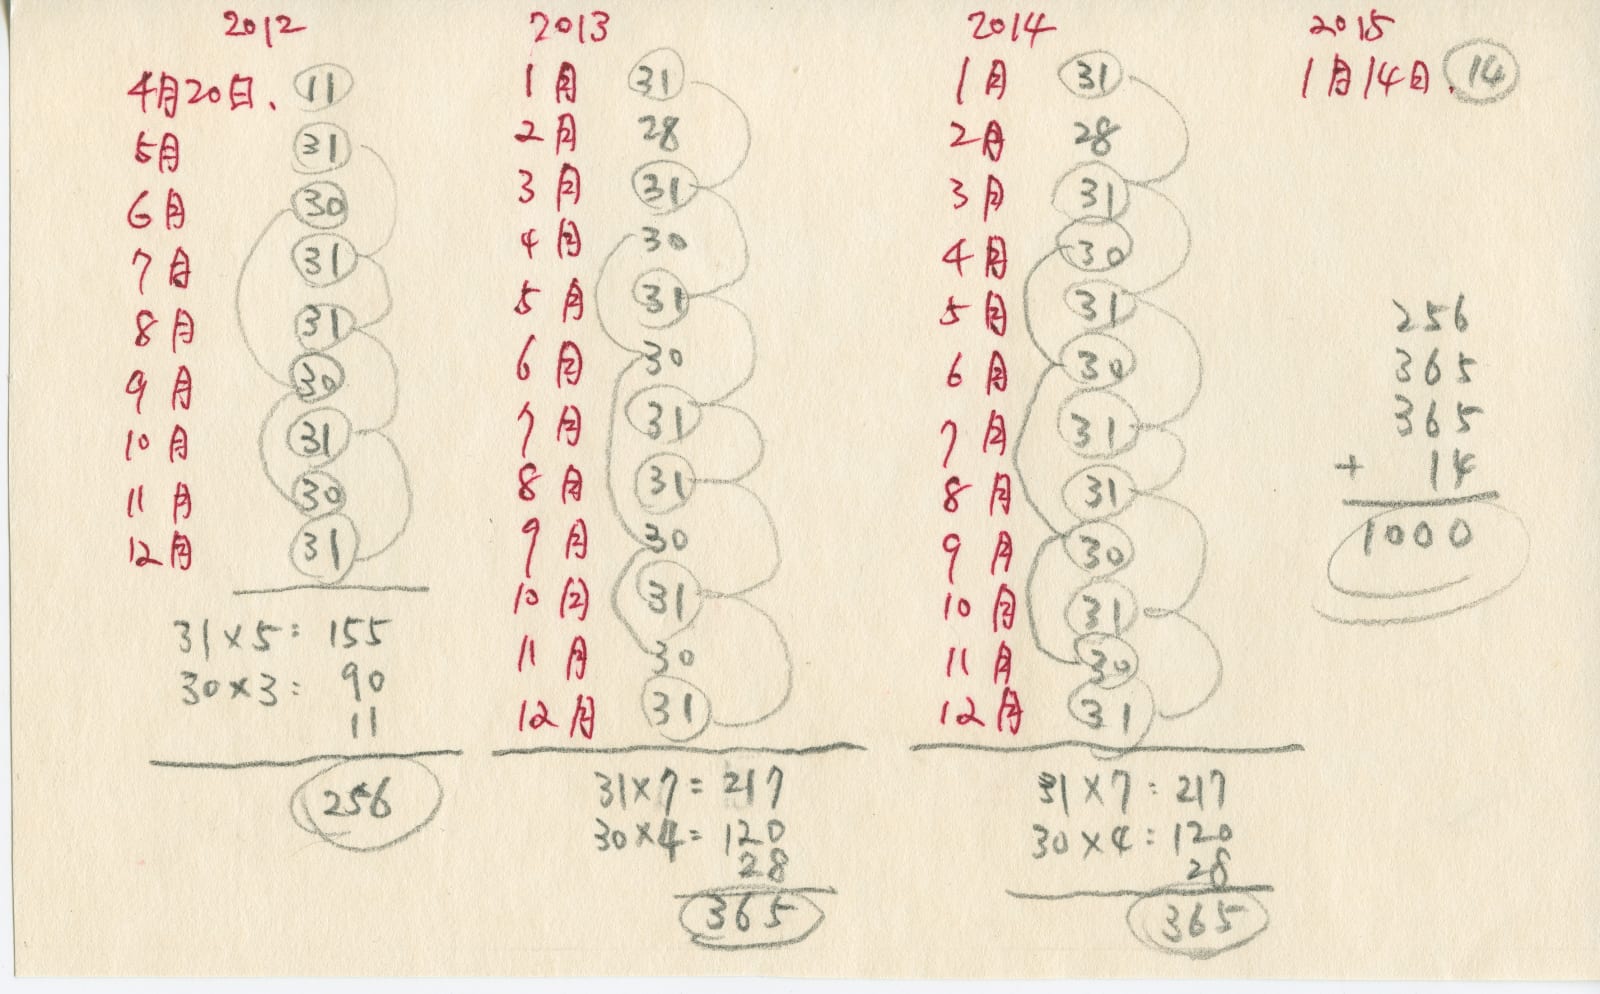 2012
4月20日、 11
5月 31
6月 30
7月 31
8月 31
9月 30
10月 31
11月 30
12月 31
31×5= 155
30×3= 90
11
256
2013
1月 31
2月 28
3月 31
4月 30
5月 31
6月 30
7月 31
8月 31
9月 30
10月 31
11月 30
12月 31
31×7= 217
30×4= 120
28
365
2014
1月 31
2月 28
3月 31
4月 30
5月 31
6月 30
7月 31
8月 31
9月 30
10月 31
11月 30
12月 31
31×7= 217
30×4= 120
28
365
2015
1月14日、 14
256
365
365
+ 14
1000